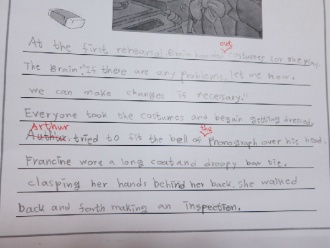 At the first rehearsal Brain hands out costumes for the play.
The Brain, "If there are any problems, let me know.
we can make changes if necesary."
Everyone took the costumes and began getting dressed
Arthur tried to fit the bell of the Phonograph over his head.
Francine wore a long coat and droopy bow tie.
clasping her hands behind her back, she walked
back and forth making an inspection.